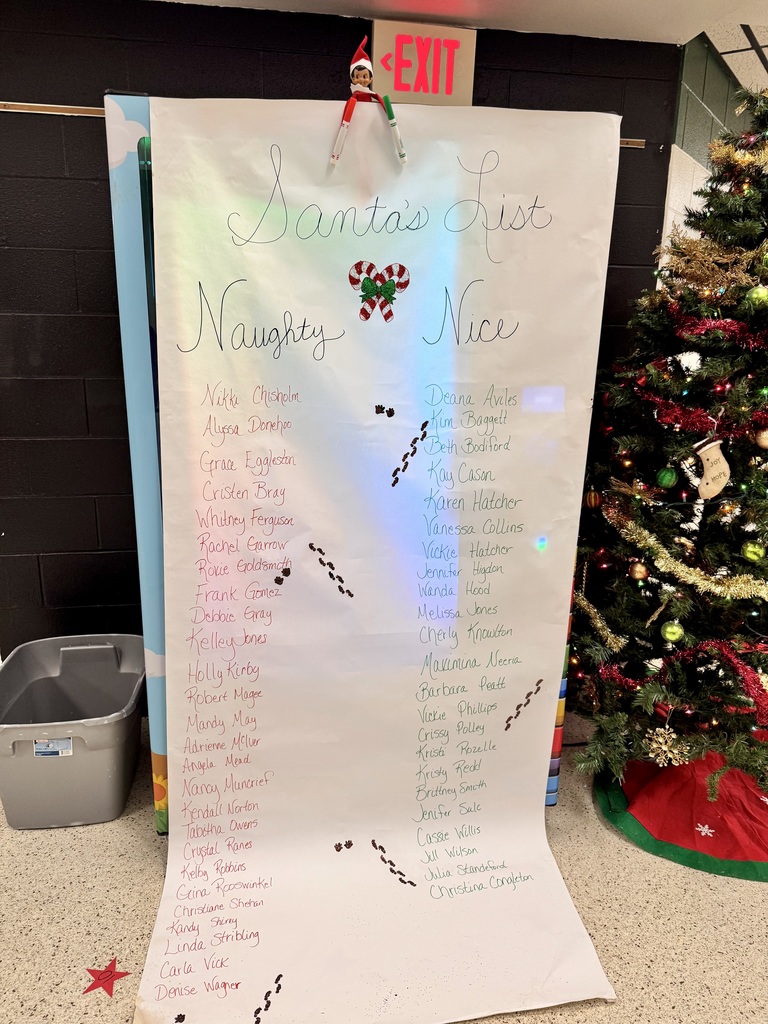 <EXIT
Santa's List
Naughty
Nikki Chisholm
Alyssa Donehoo
Grace Eggleston
Cristen Bray
Whitney Ferguson
Rachel Garrow
Roxie Goldsmith
Frank Gomez
Debbie Gray
Kelley Jones
Holly Kirby
Robert Magee
Mandy May
Adrienne McIver
Angela Mead
Nancy Muncrief
Kendall Norton
Tabitha Owens
Crystal Ranes
Kelby Robbins
Gina Rooswinkel
Christiane Shehan
Kandy
Linda Stribling
Carla Vick
Denise Wagner
Nice
Deana Aviles
Kim Baggett
Beth Bodiford
Kay Cason
Karen Hatcher
Vanessa Collins
Vickie Hatcher
Jennifer Higdon
Wanda Hood
Melissa Jones
Cherly Knowlton
Maximina Neeria
Barbara Peatt
Vickie Phillips
Crissy Polley
Kristi Rozelle
Kristy Redd
Brittney Smith
Jenifer Sale
Cassie Willis
Jill Wilson
Julia Standeford
Christina Congleton
JOY
HOPE